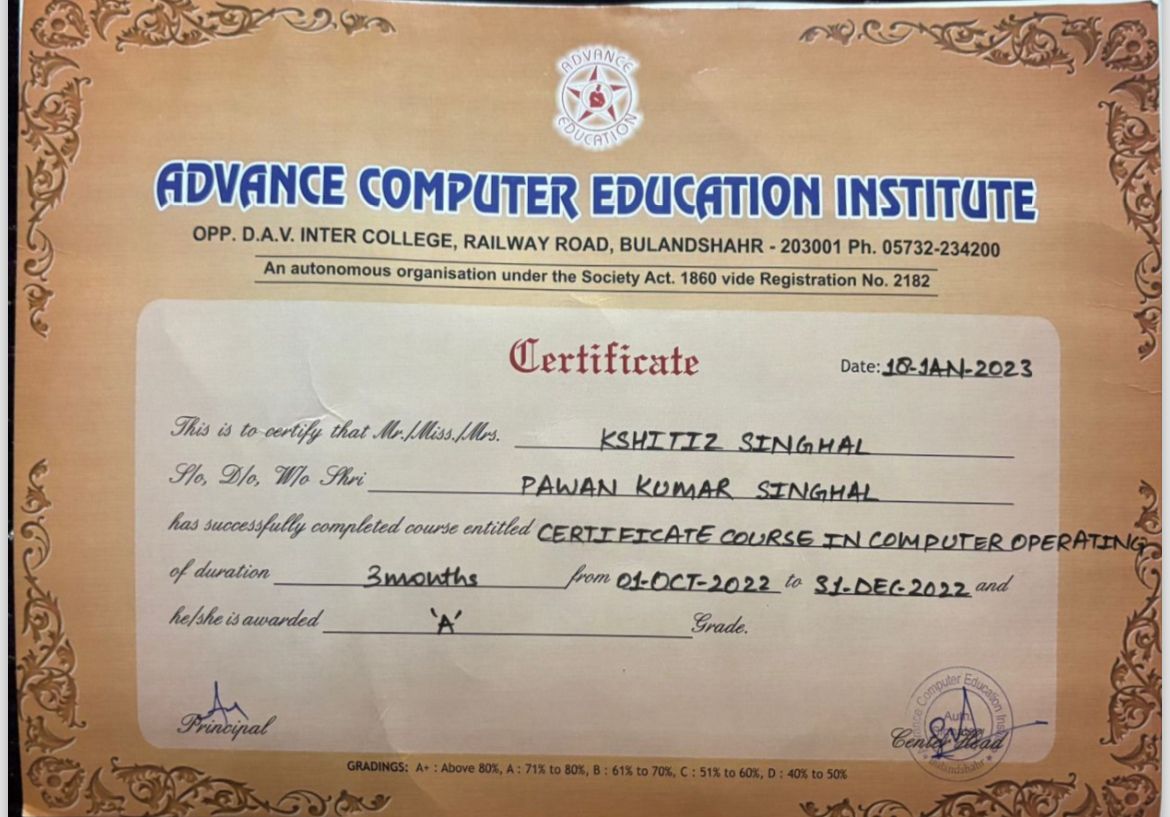 ADVANCE EDUCATION
ADVANCE COMPUTER EDUCATION INSTITUTE
OPP. D.A.V. INTER COLLEGE, RAILWAY ROAD, BULANDSHAHR - 203001 Ph. 05732-234200
An autonomous organisation under the Society Act. 1860 vide Registration No. 2182
Certificate
Date: 18-JAN-2023
This is to certify that Mr./Miss./Mrs. KSHITIZ SINGHAL
S/o, D/o, W/o Shri PAWAN KUMAR SINGHAL
has successfully completed course entitled CERTIFICATE COURSE IN COMPUTER OPERATING
of duration 3 months from 01-OCT-2022 to 31-DEC-2022 and
he/she is awarded 'A' Grade.
Computer Education
Auth.
Bulandshahr
Principal
Center Head
GRADINGS: A+ : Above 80%, A : 71% to 80%, B : 61% to 70%, C : 51% to 60%, D : 40% to 50%